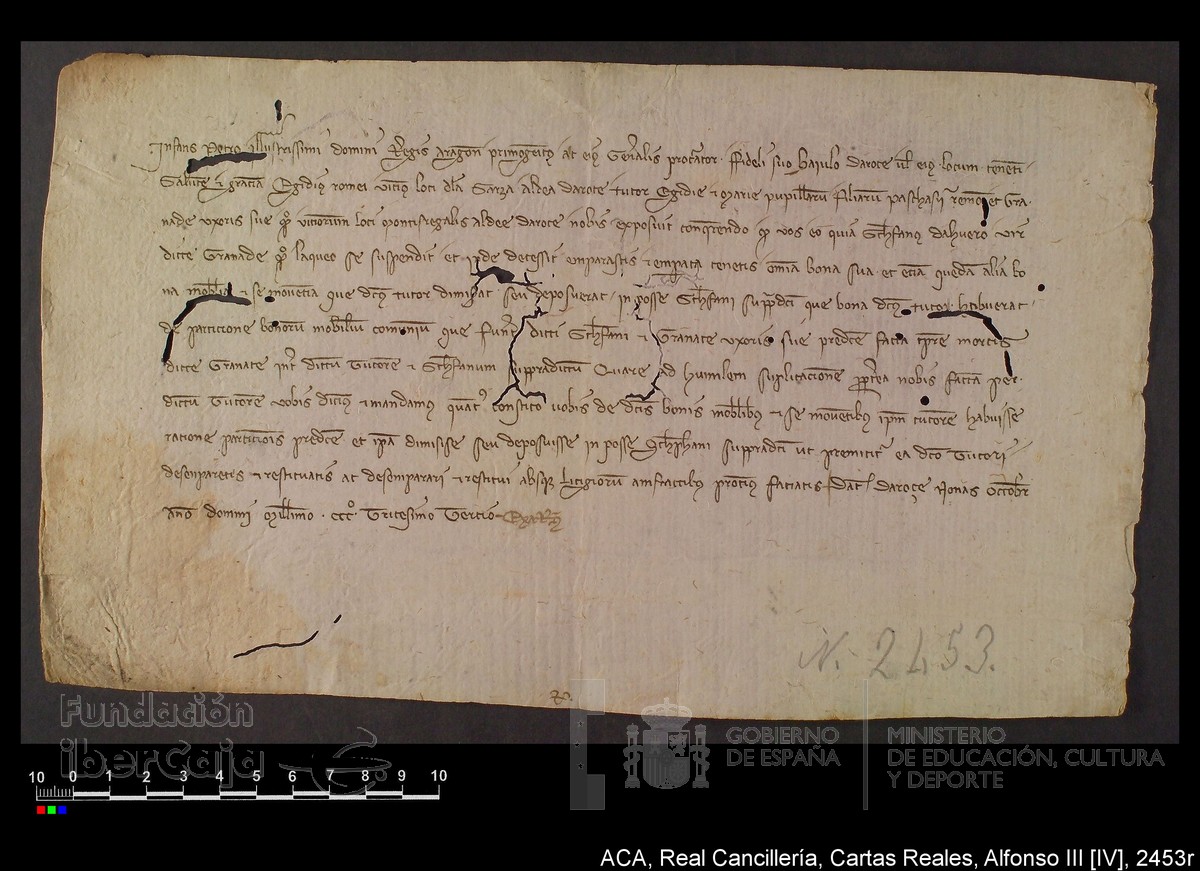 Infans Petro illustrissimi domini Regis Aragon primogenitus ac eius Generalis procurator fideli suo baiulo daroce vel eius locum tenenti
Salutem et graciam Egidius romei vicinus loci dela Sarza aldea daroce tutor Egidie et marie pupillarum filiarum paschasii et Gra
nade uxoris sue loci Montisregalis aldee daroce nobis exposuit conquerendo quod vos eo quia Stephanus dahuero vir
dicte Granade laqueo se suspendit et inde decessit emparastis et emparata tenetis omnia bona sua et etiam quedam alia bo
na mobilia et se movencia que dictus tutor dimiserat seu deposuerat in posse Stephani supradicti que bona dictus tutor habuerat
de particione bonorum mobilium comunium que fuerunt dicti Stephani et Granate uxoris sue predicte facta tempore mortis
dicte Granate inter dictum Tutorem et Stephanum suppradictum Quare ad humilem suplicacionem propterea nobis factam per
dictum Tutorem vobis dicimus et mandamus quatenus constito vobis de dictis bonis mobilibus et se moventibus ipsum tutorem habuisse
racione particionis predicte et ipsa dimisise seu deposuisse in posse Stephani suppradicti ut premititur ea dicto Tutori
desenparetis et restituatis ac desemparari et restitui absque litigiorum amfractibus protinus faciatis Dat daroce Nonas Octobr
anno domini millesimo CCCº Tricesimo Tercio
N. 2453.
Fundación
iberCaja
GOBIERNO
DE ESPAÑA
MINISTERIO
DE EDUCACIÓN, CULTURA
Y DEPORTE
10 0 1 2 3 4 5 6 7 8 9 10
ACA, Real Cancillería, Cartas Reales, Alfonso III [IV], 2453r